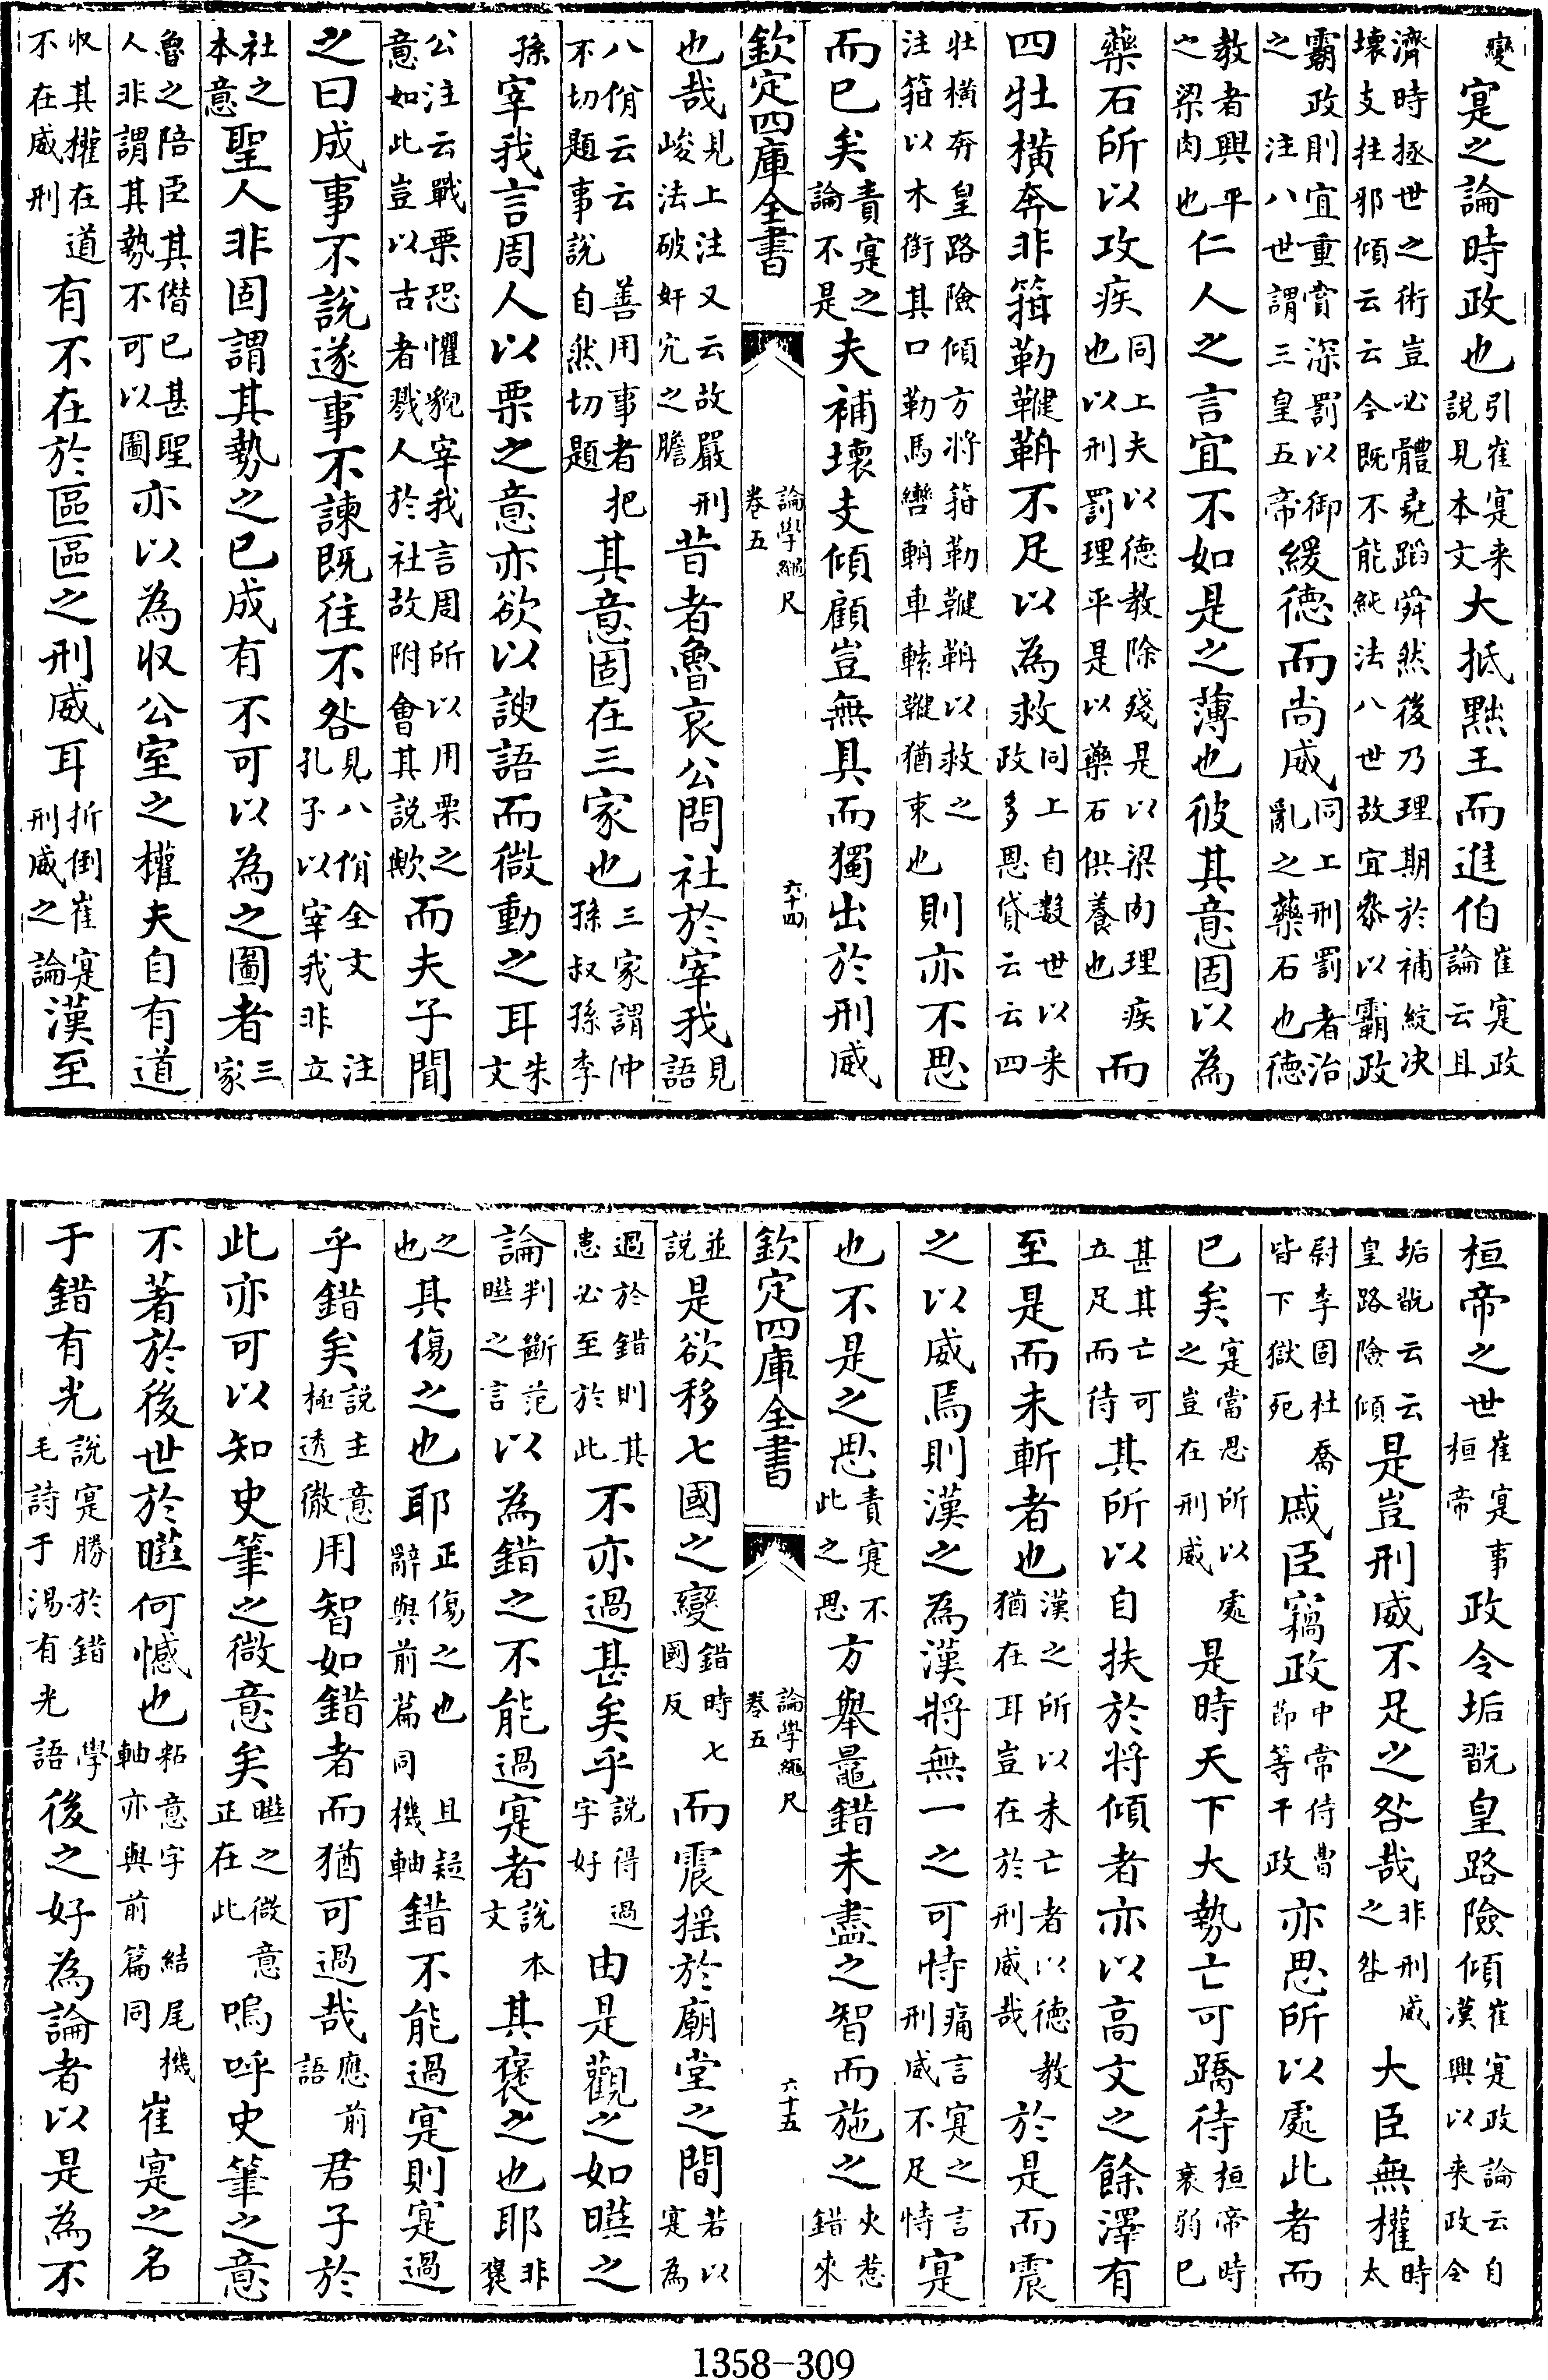 變寔之論時政也引崔寔來說見本文大抵黜王而進伯崔寔政論云且
濟時拯世之術豈必體堯蹈舜然後乃理期於補綻决壞支拄邪傾云云今既不能純法八世故宜叅以霸政
霸政則宜重賞深罰以御之注八世謂三皇五帝緩德而尚威同上刑罰者治亂之藥石也德
教者興平之梁肉也仁人之言宜不如是之薄也彼其意固以為
藥石所以攻疾同上夫以德教除殘是以梁肉理疾也以刑罰理平是以藥石供養也而
四牡橫奔非箝勒鞬鞙不足以為救同上自數世以来政多恩貸云云四
牡橫奔皇路險傾方將箝勒鞬鞙以救之注箝以木銜其口勒馬轡鞙車轅鞬猶束也則亦不思
而已矣責寔之論不是夫補壊支傾顧豈無具而獨出於刑威
欽定四庫全書 論學繩尺 卷五 六十四
也哉見上注又云故嚴刑峻法破奸宄之膽昔者魯哀公問社於宰我見語
八佾云云善用事者把不切題事說自然切題其意固在三家也三家謂仲孫叔孫季
孫宰我言周人以栗之意亦欲以諛語而微動之耳朱文
公注云戰栗恐懼貌宰我言周所以用栗之意如此豈以古者戮人於社故附會其説歟而夫子聞
之曰成事不說遂事不諫既往不咎見八佾全文注孔子以宰我非立
社之本意聖人非固謂其勢之已成有不可以為之圖者三家
魯之陪臣其僭已甚聖人非謂其勢不可以圖亦以為収公室之權夫自有道
収其權在道不在威刑有不在於區區之刑威耳折倒崔寔刑威之論漢至
桓帝之世崔寔事桓帝政令垢翫皇路險傾崔寔政論云自漢興以来政令
垢翫云云皇路險傾是豈刑威不足之咎哉非刑威之咎大臣無權時太
尉李固杜喬皆下獄死戚臣竊政中常侍曹節等干政亦思所以處此者而
已矣寔當思所以處之豈在刑威是時天下大勢亡可蹻待桓帝時衰弱已
甚其亡可立足而待其所以自扶於將傾者亦以高文之餘澤有
至是而未斬者也漢之所以未亡者以德教猶在耳豈在於刑威哉於是而震
之以威焉則漢之為漢將無一之可恃痛言寔之言刑威不足恃寔
也不是之思責寔不此之思方舉鼂錯未盡之智而施之火惹錯來
欽定四庫全書 論學繩尺 卷五 六十五
並説是欲移七國之變錯時七國反而震揺於廟堂之間若以寔為
過於錯則其患必至於此不亦過甚矣乎説得過字好由是觀之如曄之
論判斷范曄之言以為錯之不能過寔者說本文其褒之也耶非褒
之也其傷之也耶正傷之也且疑辭與前篇同機軸錯不能過寔則寔過
乎錯矣説主意極透徹用智如錯者而猶可過哉應前語君子於
此亦可以知史筆之微意矣曄之微意正在此嗚呼史筆之意
不著於後世於曄何憾也粘意字結尾機軸亦與前篇同崔寔之名
于錯有光說寔勝於錯學毛詩于湯有光語後之好為論者以是為不
1358-309